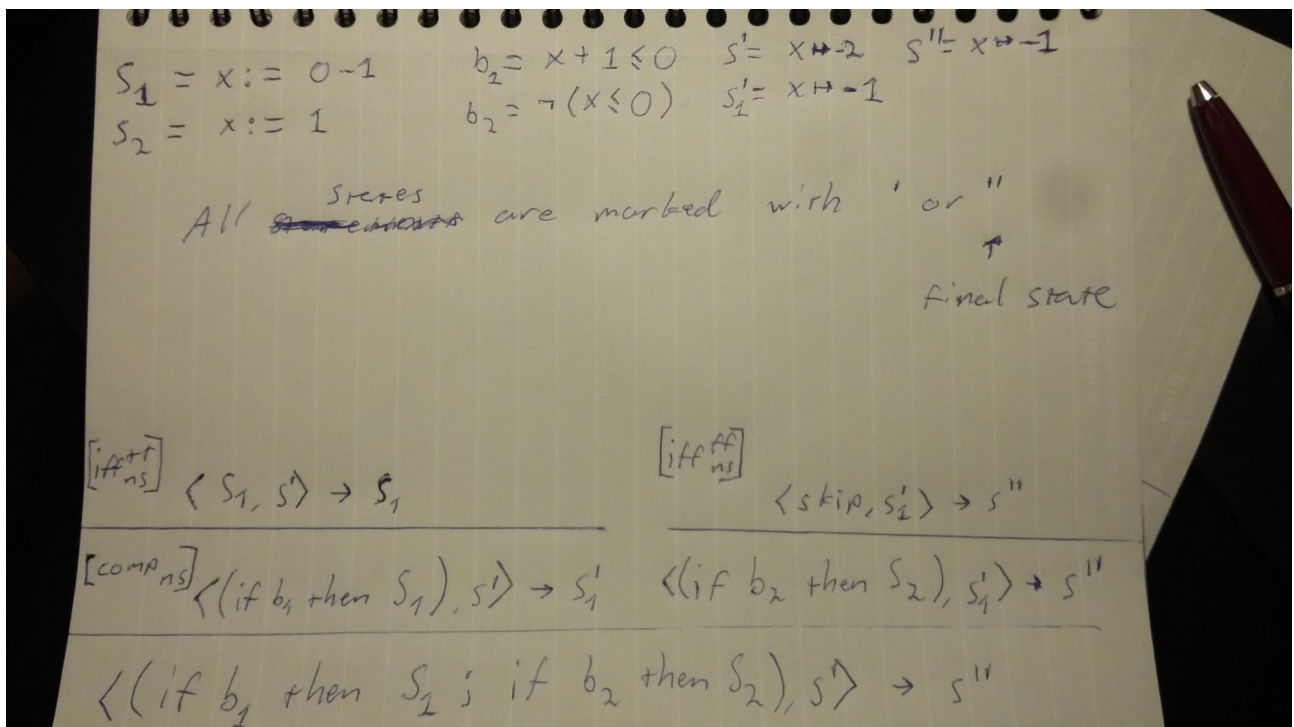 S₁ = x := 0-1 b₁ = x + 1 ≤ 0 s' = x ↦ -2 s'' = x ↦ -1
S₂ = x := 1 b₂ = ¬(x ≤ 0) s₁' = x ↦ -1
states
All are marked with ' or ''
↑
final state
[if_ns^tt] [if_ns^ff]
⟨S₁, s'⟩ → s₁ ⟨skip, s₁'⟩ → s''
[comp_ns] ⟨(if b₁ then S₁), s'⟩ → s₁' ⟨(if b₂ then S₂), s₁'⟩ → s''
⟨(if b₁ then S₁ ; if b₂ then S₂), s'⟩ → s''